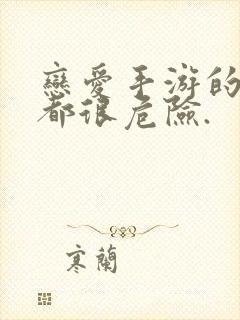 戀愛手游的
都很危險.
寒蘭